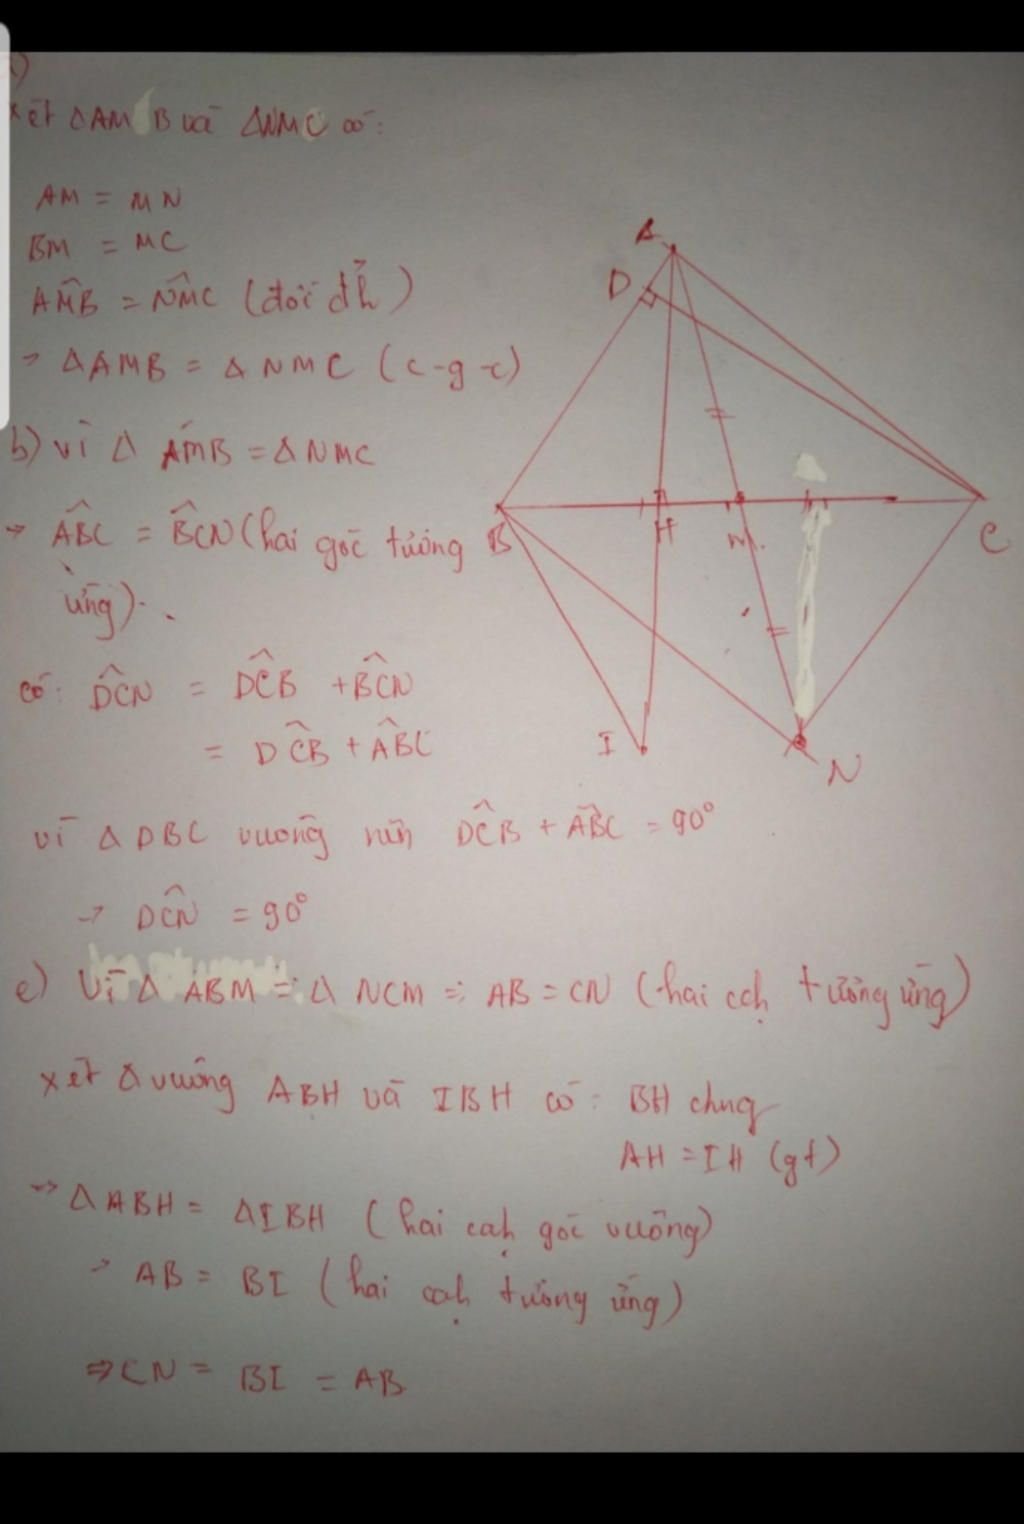 a)
Xét ΔAMB và ΔNMC có:
AM = MN
BM = MC
AMB̂ = NMĈ (đối đỉh)
→ ΔAMB = ΔNMC (c-g-c)
b) vì Δ AMB = Δ NMC
→ ABĈ = BCN̂ (hai góc tương
ứng).
có: DCN̂ = DCB̂ + BCN̂
= DCB̂ + ABĈ
vì Δ DBC vuông nên DCB̂ + ABĈ = 90°
→ DCN̂ = 90°
c) Vì Δ ABM = Δ NCM => AB = CN (hai cạh tương ứng)
xét Δ vuông ABH và IBH có: BH chug
AH = IH (gt)
→ Δ ABH = Δ IBH (hai cạh góc vuông)
→ AB = BI (hai cạh tương ứng)
⇒ CN = BI = AB
A
D
B
H
M
C
I
N